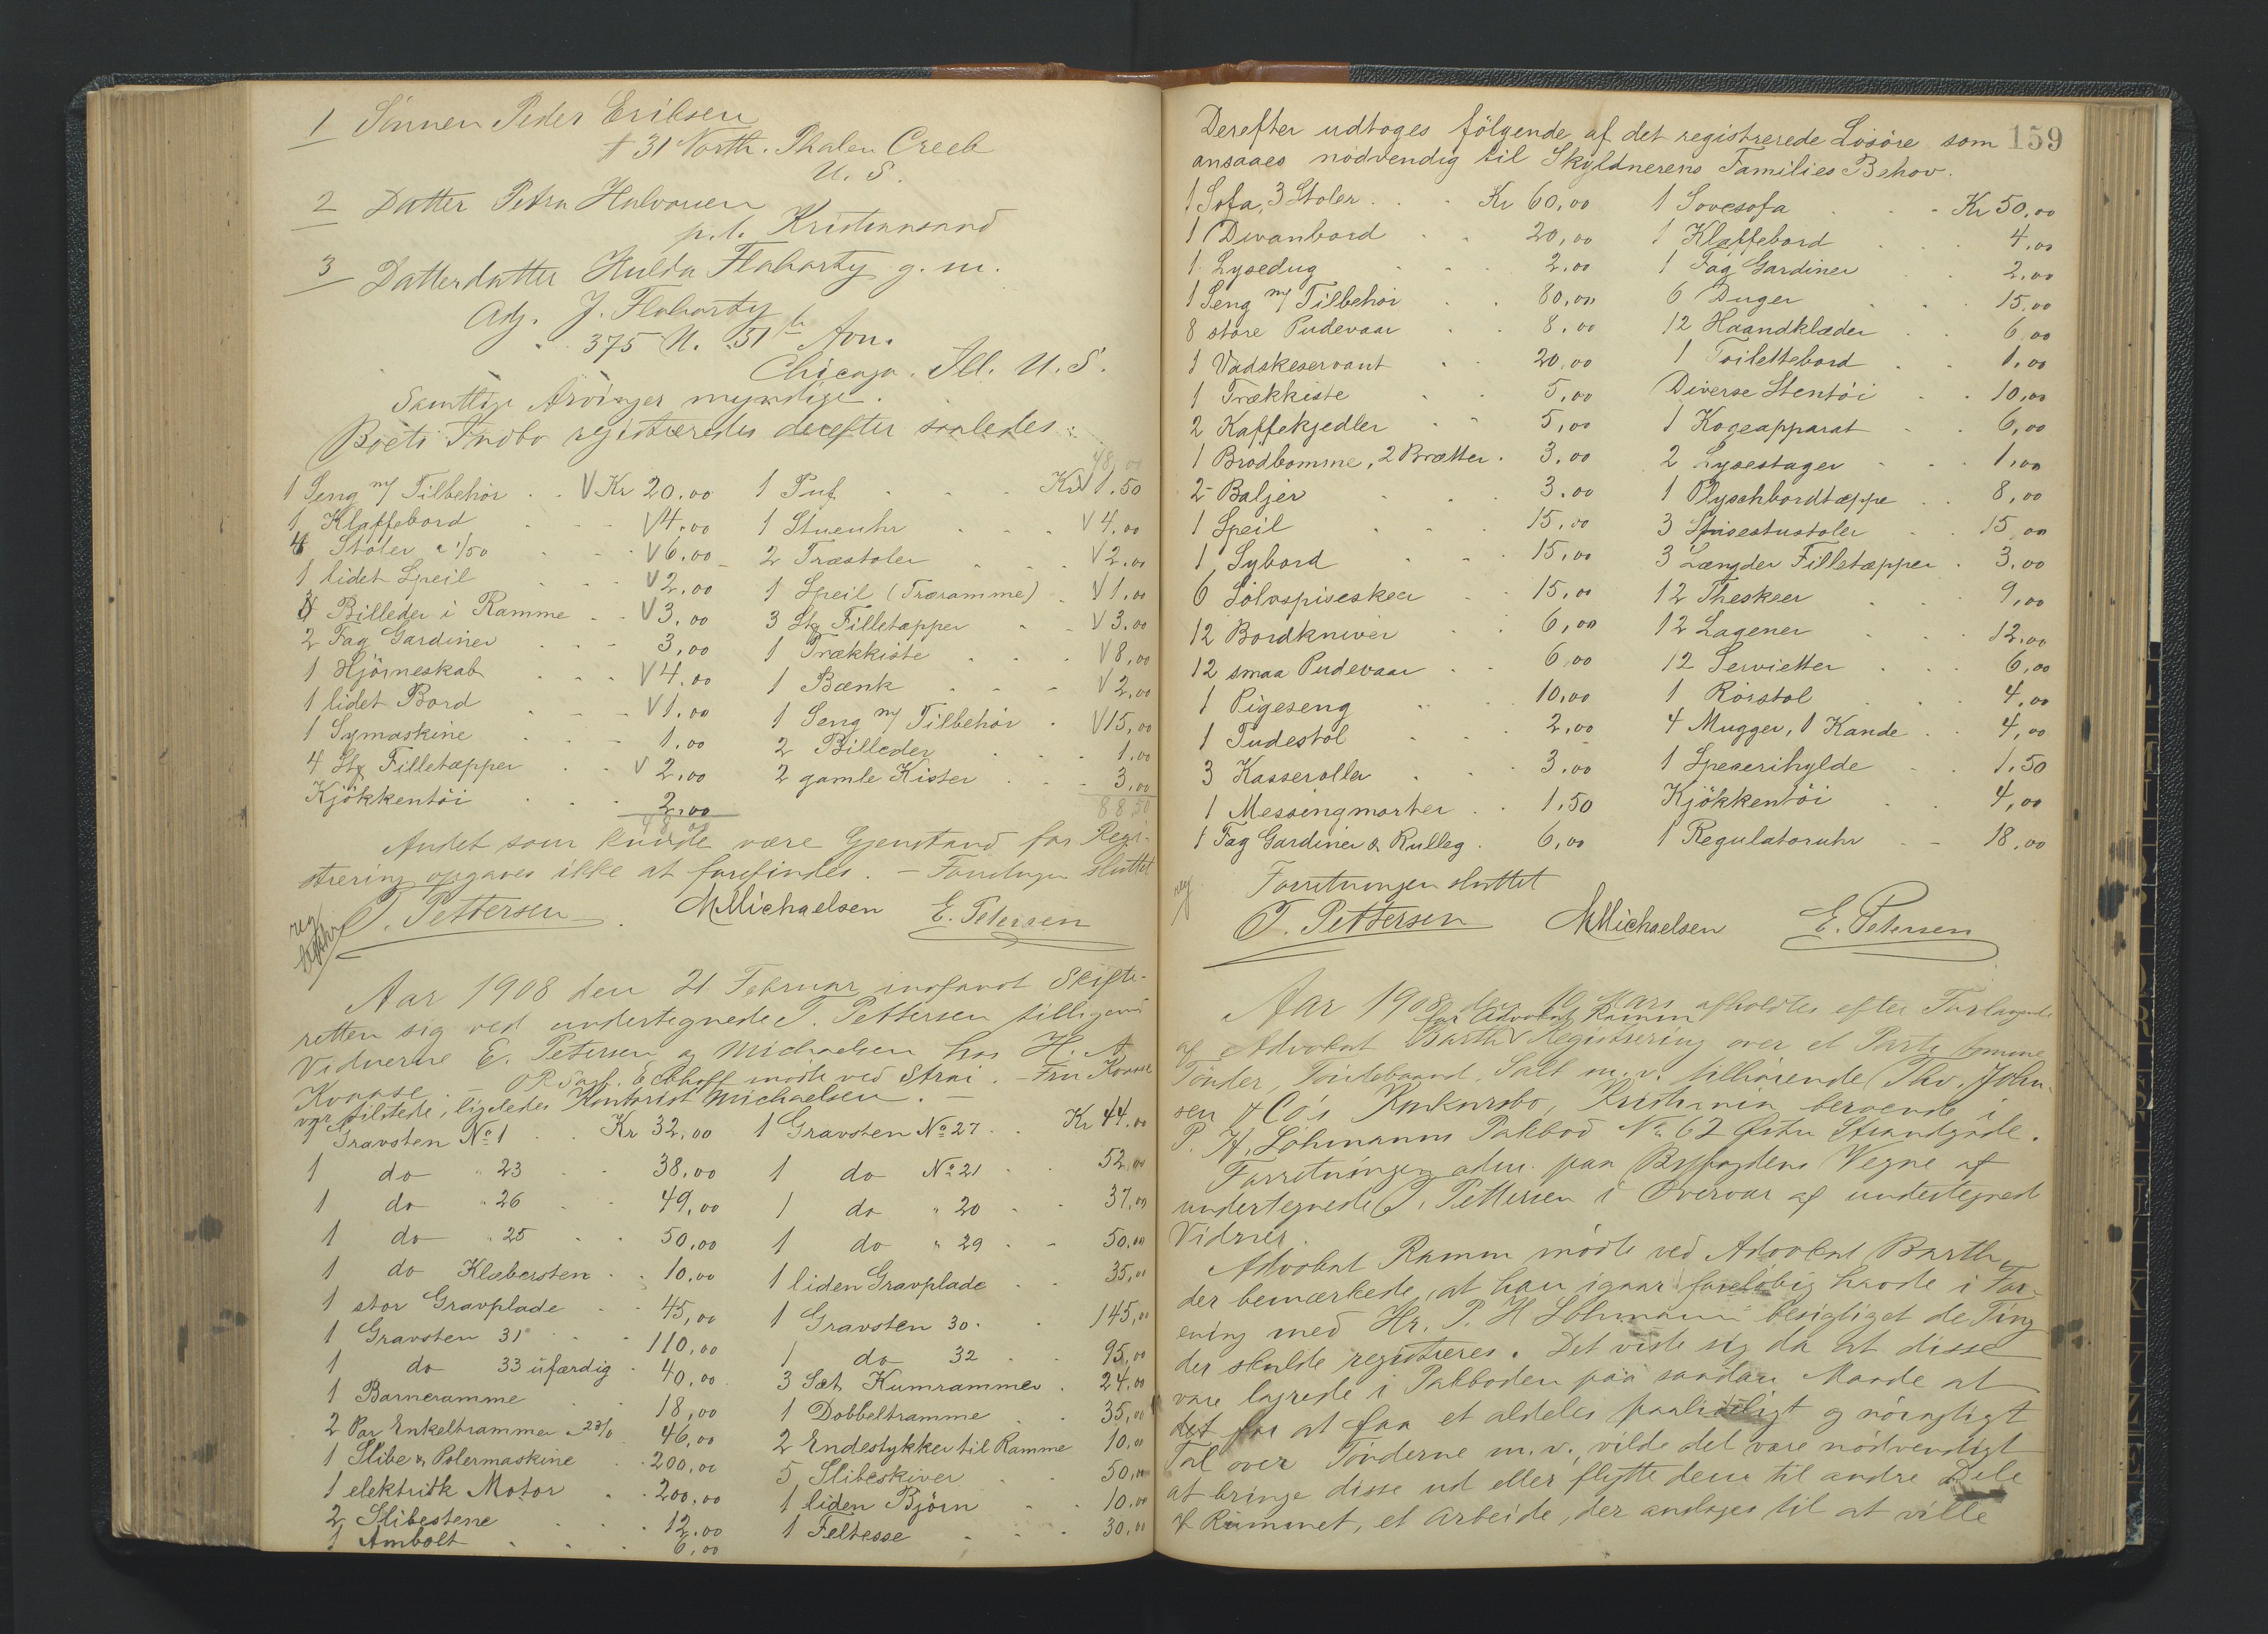 1 Sönnen Peder Eriksen
# 31 North. Phalen Creek
U. S.
2 Datter Petra Halvorsen
p. t. Kristianssand
3 Datterdatter Hulda Flaharty g. m.
Adj. J. Flaharty
375 N. 51th Avn.
Chicago. Ill. U. S.
Samtlige Arvinger myndige.
Boets Indbo registreredes derefter saaledes:
48,00
1 Seng m/ Tilbehör . . V Kr 20.00
1 Klaffebord . . . V 4.00
4 Stoler a 1/50 . . . V 6.00
1 lidet Speil . . . V 2,00
3 Billeder i Ramme . . V 3,00
2 Fag Gardiner . . . 3,00
1 Hjörneskab . . . V 4.00
1 lidet Bord . . . V 1.00
1 Symaskine . . . 1.00
4 Stk Filletæpper . . V 2,00
Kjökkentöi . . . 2.00
48,00
1 Puf . . . Kr V 1.50
1 Stueuhr . . V 4,00
2 Træstoler . . . V 2.00
1 Speil (Træramme) . V 1,00
3 Stk Filletæpper . . V 3.00
1 Trækkiste . . . V 8,00
1 Bænk . . . V 2,00
1 Seng m/ Tilbehör . V 15,00
2 Billeder . . . 1.00
2 gamle Kister . . . 3,00
88,50
Andet som kunde være Gjenstand for Regi-
strering opgaves ikke at forefindes. – Forretngen sluttet
reg
T. Pettersen. MMichaelsen E. Petersen
Aar 1908 den 21 Februar indfandt Skifte-
retten sig ved undertegnede T. Pettersen tilligemed
Vidnerne E. Petersen og Michaelsen hos H. A
Kvaase. – OR Sagf. Eckhoff mødte ved Strai. – Fru Kvaase
var tilstede, ligeledes Kontorist Michaelsen. –
1 Gravsten No 1 . . Kr 32,00
1 do " 23 . . 38,00
1 do " 26 . . 49,00
1 do " 25 . . 50,00
1 do Klæbersten . . 10,00
1 stor Gravplade . . 45,00
1 Gravsten 31 . . . 110,00
1 do 33 ufærdig . 40,00
1 Barneramme . . 18,00
2 Par Enkeltrammer a 23/0 46,00
1 Slibe & Polermaskine . 200,00
1 elektrisk Motor . . 200,00
2 Slibestene . . . 12,00
1 Ambolt . . . 6,00
1 Gravsten No 27 . . Kr 44.00
1 do No 21 . . 52,00
1 do " 20 . . 37,00
1 do " 29 . . 50,00
1 liden Gravplade . . 35,00
1 Gravsten 30 . . 145,00
1 do 32 . . 95,00
3 Sæt Kumrammer . 24,00
1 Dobbeltramme . . 35,00
2 Endestykker til Ramme 10,00
5 Slibeskiver . . 50,00
1 liden Björn . . 10,00
1 Feltesse . . . 30,00
159
Derefter udtoges fölgende af det registrerede Lösöre som
ansaaes nödvendig til Skyldnerens Families Behov.
1 Sofa, 3 Stoler . . . Kr 60,00
1 Divanbord . . 20,00
1 Lysedug . . . 2,00
1 Seng m/ Tilbehör . . 80,00
8 store Pudevaar . . 8,00
1 Vadskeservant . . 20,00
1 Trækkiste . . 5,00
2 Kaffekjedler . . 5,00
1 Brödbomme, 2 Brætter . 3,00
2 Baljer . . . 3.00
1 Speil . . . 15,00
1 Sybord . . . 15,00
6 Sölvspiseskeer . . 15,00
12 Bordkniver . . 6,00
12 smaa Pudevaar . . 6,00
1 Pigeseng . . 10,00
1 Pudestol . . . 2,00
3 Kasseroller . . . 3,00
1 Messingmorter . . 1.50
1 Fag Gardiner & Rulleg . 6,00
1 Sovesofa . . . Kr 50,00
1 Klaffebord . . . 4,00
1 Fag Gardiner . . 2,00
6 Duger . . . 15,00
12 Haandklæder . . 6,00
1 Toilettebord . . 1,00
Diverse Stentöi . . 10,00
1 Kogeapparat . . 6,00
2 Lysestager . . . 1,00
1 Plyschbordtæppe . . 8,00
3 Spisestustoler . . 15,00
3 Længder Filletæpper . 3,00
12 Theskeer . . . 9,00
12 Lagener . . . 12,00
12 Servietter . . . 6,00
1 Rörstol . . . 4,00
4 Mugger, 1 Kande . . 4,00
1 Speserihylde . . 1,50
Kjökkentöi . . 4,00
1 Regulatoruhr . . 18,00
reg
Forretningen sluttet
T. Pettersen MMichaelsen E. Petersen
Aar 1908 den 10 Mars afholdtes efter Forlangende
for Advokat Ramm
af Advokat Barth V Registrering over et Parti tomme
Tönder, Töndebaand, Salt m. v. tilhörende Thv. John-
sen & Co's Konkursbo, Kristiania beroende i
P. H. Löhmanns Pakbod No 62 Östre Strandgade.
Forretningen adm. paa Byfogdens Vegne af
undertegnede T. Pettersen i Overvær af undertegned
Vidner.
Advokat Ramm mödte ved Advokat Barth,
der bemærkede, at han igaar forelöbig havde i For-
ening med Hr. P. H Löhmann besigtiget de Ting
der skulde registreres. Det viste sig da at disse
vare lagrede i Pakboden paa saadan Maade at
det for at faa et aldeles paalideligt og nöiagtigt
Tal over Tönderne m. v., vilde det være nödvendigt
at bringe disse ud eller flytte dem til andre Dele
af Rummet, et Arbeide, der antoges til at ville